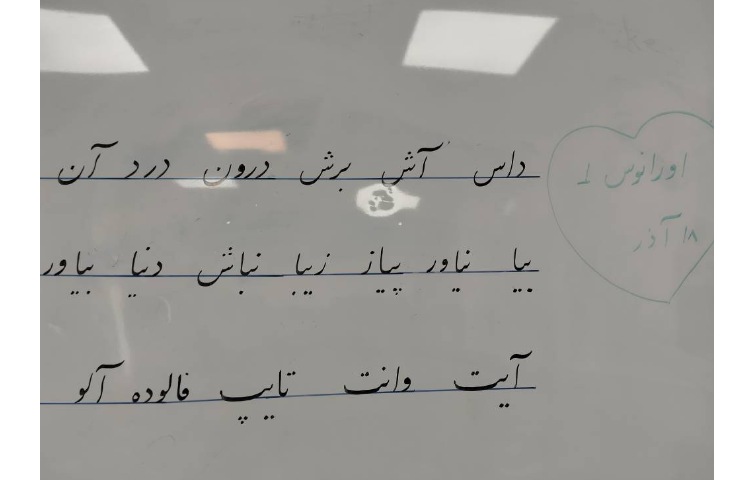 داس آش برش درون درد آن
بیا نیاور پیاز زیبا نباش دنیا بیاور
آیت وانت تایپ فالوده آلو
اورانوس ۱
۱۸ آذر